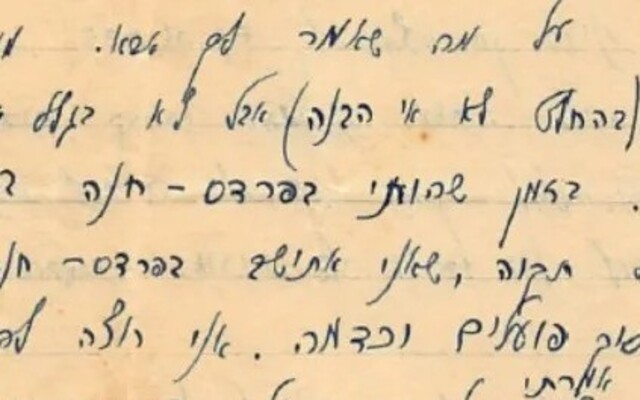 על מה שאמר לך אבא.
(בהחלט לא אי הבנה) אבל לא בגלל
. בזמן שהותי בפרדס - חנה
תקוה, שאני אתישב בפרדס-
פועלים וכדמה. אני רוצה
אמרתי